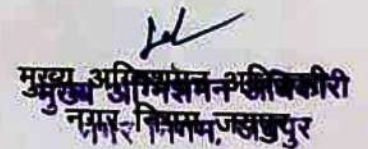 मुख्य अग्निशमन अधिकारी
नगर निगम,